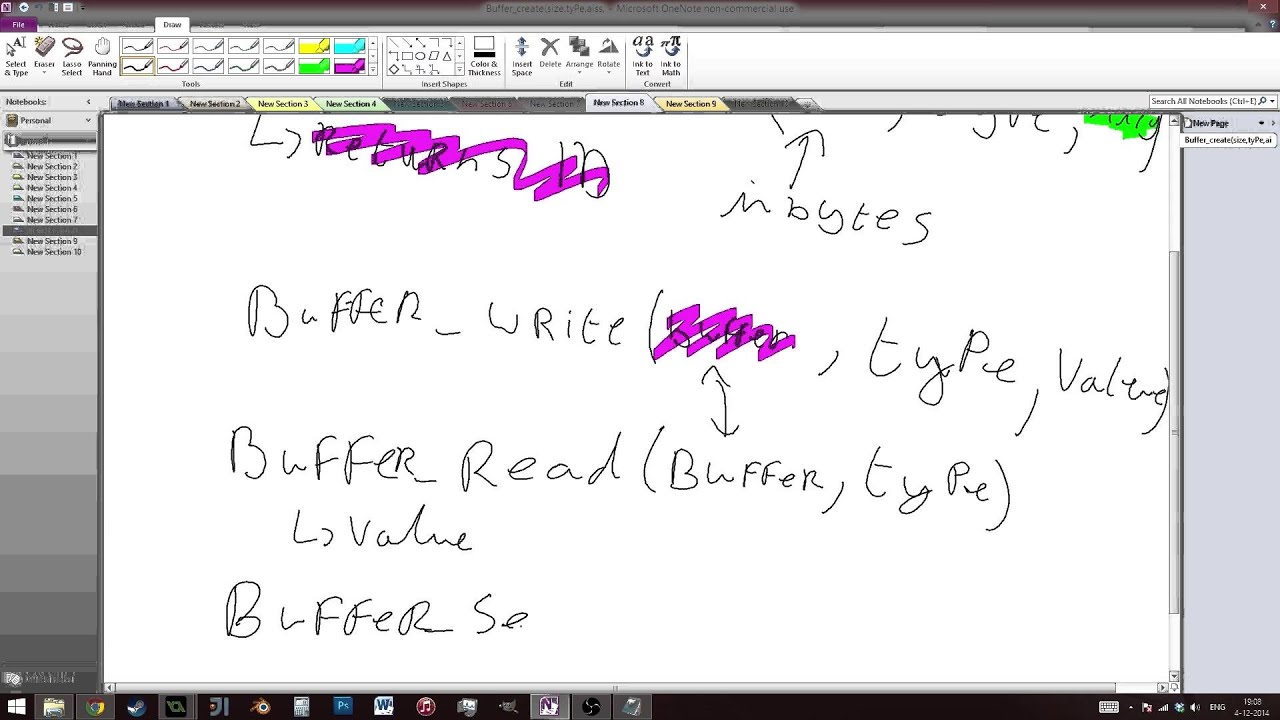 Buffer_create(size,tyPe,aiss. - Microsoft OneNote non-commercial use
File
Draw
Select & Type
Eraser
Lasso Select
Panning Hand
Color & Thickness
Insert Space
Delete
Arrange
Rotate
Ink to Text
Ink to Math
Tools
Insert Shapes
Edit
Convert
Notebooks:
New Section 1
New Section 2
New Section 3
New Section 4
New Section 8
New Section 9
Search All Notebooks (Ctrl+E)
Personal
New Page
Buffer_create(size,tyPe,ai
New Section 1
New Section 2
New Section 3
New Section 4
New Section 5
New Section 6
New Section 7
New Section 9
New Section 10
↳ Returns ID
in bytes
BuFFER_WRite(Buffer, tyPe, Value)
BuFFeR_Read(BuFFeR, tyPe)
↳ Value
BuFFeR_Se
ENG
19:08
4-12-2014